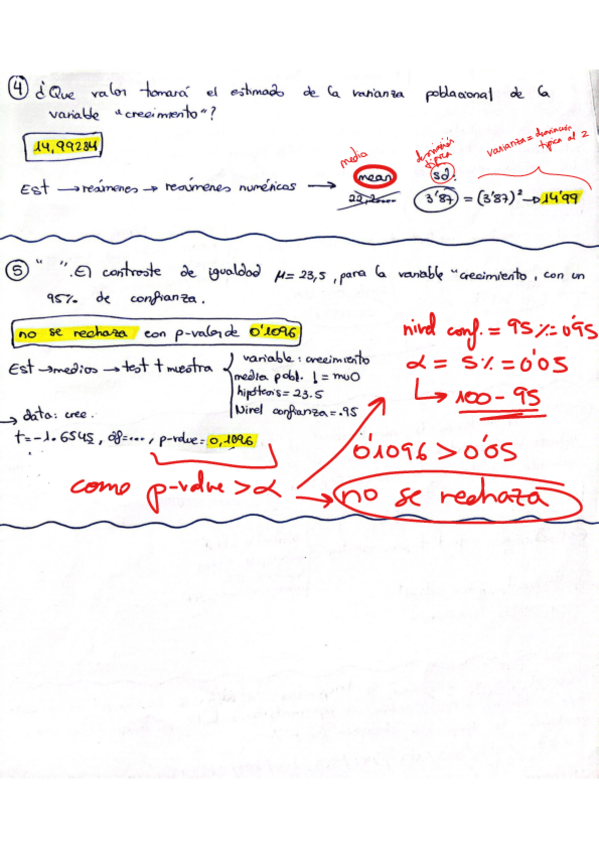 ④ ¿Que valor tomará el estimado de la varianza poblacional de la
variable "crecimiento"?
14,99284
Est → resúmenes → resúmenes numéricos →
media
mean
22,2....
desviación típica
sd.
3'87 = (3'87)² → 14'99
varianza = desviación
típica al 2
⑤ " ". El contraste de igualdad μ = 23,5, para la variable "crecimiento, con un
95% de confianza.
no se rechaza con p-valor de 0'1096
Est → medios → test t muestra
variable: crecimiento
media pobl. | = mu0
hipótesis = 23.5
Nivel confianza = .95
→ data: crec.
t = -1.6545, df = ..., p-value = 0,1096
nivel conf. = 95% = 0'95
α = 5% = 0'05
↳ 100 - 95
0'1096 > 0'05
como p-value > α → no se rechaza